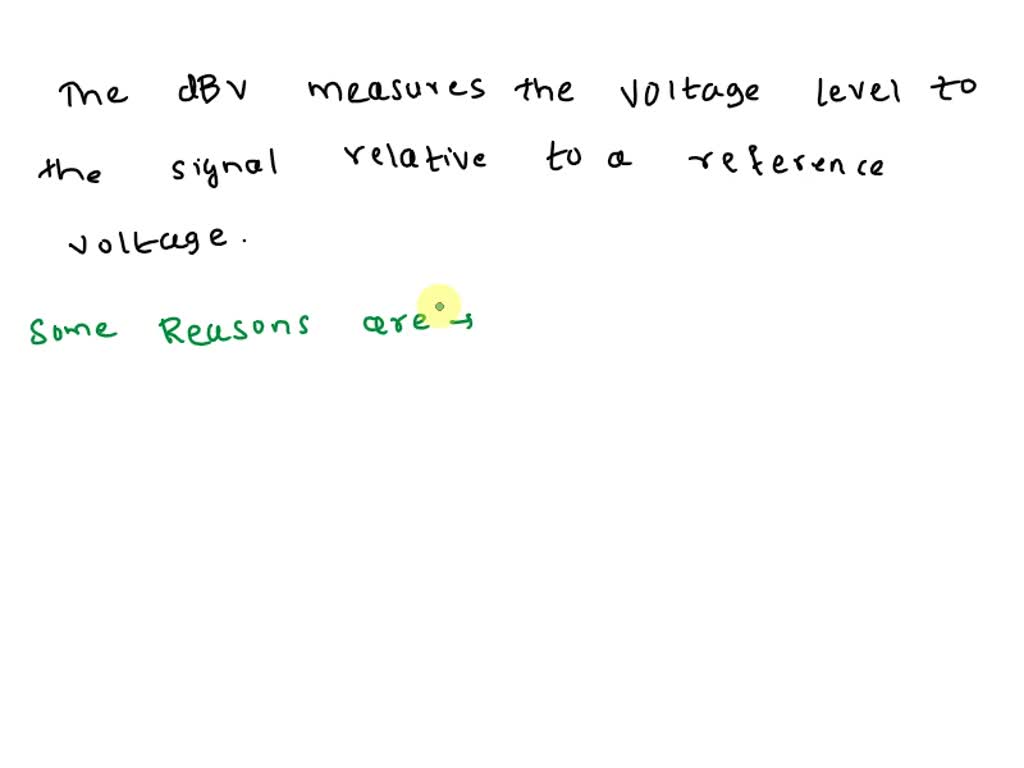 The dBV measures the voltage level to
the signal relative to a reference
voltage.
Some Reasons are →